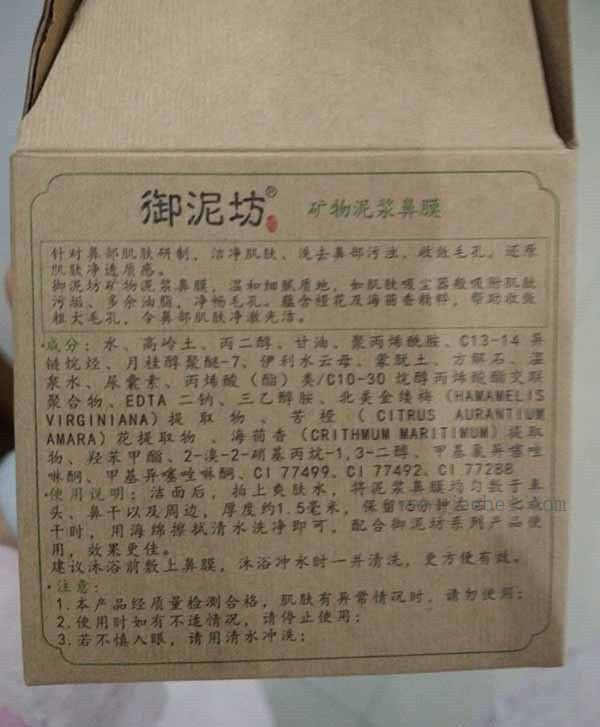 御泥坊® 矿物泥浆鼻膜
针对鼻部肌肤研制，洁净肌肤、洗去鼻部污浊，收敛毛孔。还原
肌肤净透质感。
御泥坊矿物泥浆鼻膜，温和细腻质地，如肌肤吸尘器般吸附肌肤
污垢、多余油脂，净畅毛孔。蕴含橙花及海茴香精粹，帮助收敛
粗大毛孔，令鼻部肌肤净澈光洁。
·成分：水、高岭土、丙二醇、甘油、聚丙烯酰胺、C13-14 异
链烷烃、月桂醇聚醚-7、伊利水云母、蒙脱土、方解石、温
泉水、尿囊素、丙烯酸（酯）类/C10-30 烷醇丙烯酸酯交联
聚合物、EDTA 二钠、三乙醇胺、北美金缕梅（HAMAMELIS
VIRGINIANA）提取物、苦橙（CITRUS AURANTIUM
AMARA）花提取物、海茴香（CRITHMUM MARITIMUM）提取
物、羟苯甲酯、2-溴-2-硝基丙烷-1,3-二醇、甲基氯异噻唑
啉酮、甲基异噻唑啉酮、CI 77499、CI 77492、CI 77288
·使用说明：洁面后，拍上爽肤水，将泥浆鼻膜均匀敷于鼻
头、鼻干以及周边，厚度约1.5毫米，保留15分钟左右
干时，用海绵擦拭清水洗净即可，配合御泥坊系列产品使
用，效果更佳。
建议沐浴前敷上鼻膜，沐浴冲水时一并清洗，更方便有效。
·注意：
1.本产品经质量检测合格，肌肤有异常情况时，请勿使用；
2.使用时如有不适情况，请停止使用；
3.若不慎入眼，请用清水冲洗；